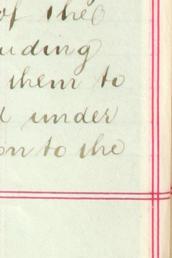 of the
uding
them to
d under
on to the